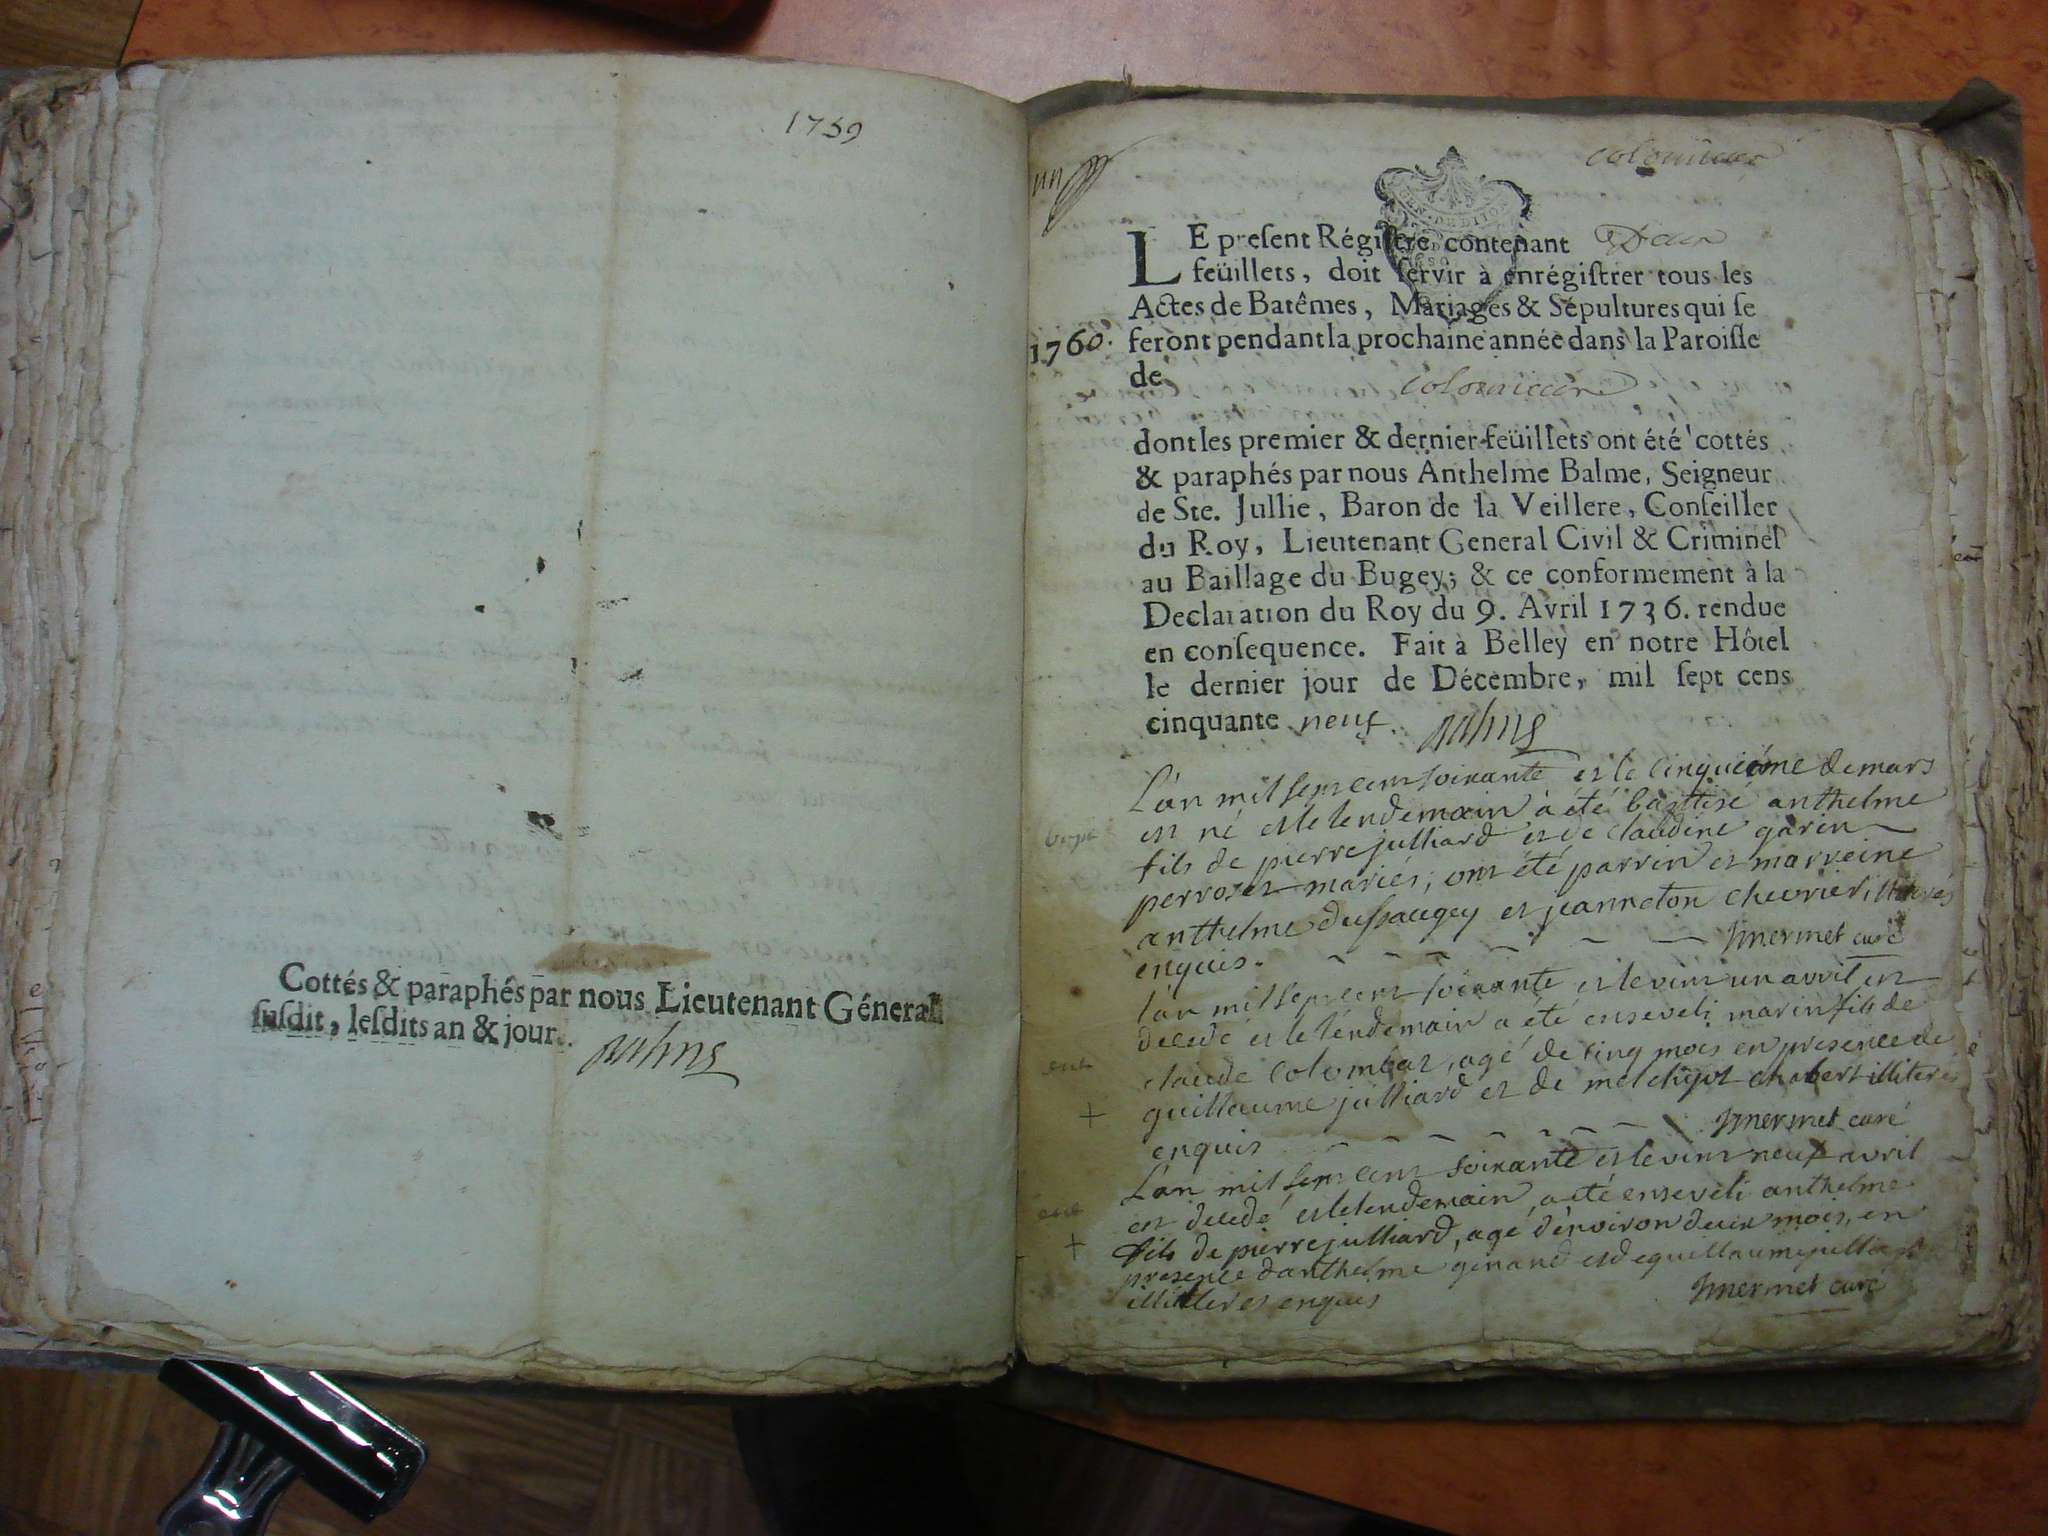 1759
Cottés & paraphés par nous Lieutenant Géneral
susdit, lesdits an & jour.
un
LE present Régistre contenant Deux
feüillets, doit servir à enrégistrer tous les
Actes de Batêmes, Mariages & Sépultures qui se
1760. feront pendant la prochaine année dans la Paroisse
de
dont les premier & dernier feüillets ont été cottés
& paraphés par nous Anthelme Balme, Seigneur
de Ste. Jullie, Baron de la Veillere, Conseiller
du Roy, Lieutenant General Civil & Criminel
au Baillage du Bugey; & ce conformement à la
Declaration du Roy du 9. Avril 1736. rendue
en consequence. Fait à Belley en notre Hôtel
le dernier jour de Décembre, mil sept cens
cinquante neuf.
L'an mil sept cent soixante et le cinquième de mars
est né et le lendemain a été baptisé anthelme
bapt
fils de pierre julliard et de claudine garin
perroset mariés; ont été parrin et marreine
anthelme dussaugey et jeanneton chevrier illiterés
enquis. Jmermet curé
l'an mil sept cent soixante et le vint un avril est
décedé et le lendemain a été enseveli marin fils de
ent claude colombat, agé de cinq mois en presence de
+ guillaume julliard et de melchiot chabert illiterés
enquis Jmermet curé
L'an mil sept cent soixante et le vint neuf avril
ent est decedé et le lendemain a été enseveli anthelme
+ fils de pierre julliard, agé d'environ deux mois, en
presence d'anthelme genand et de guillaume julliard
illiteres enquis Jmermet curé